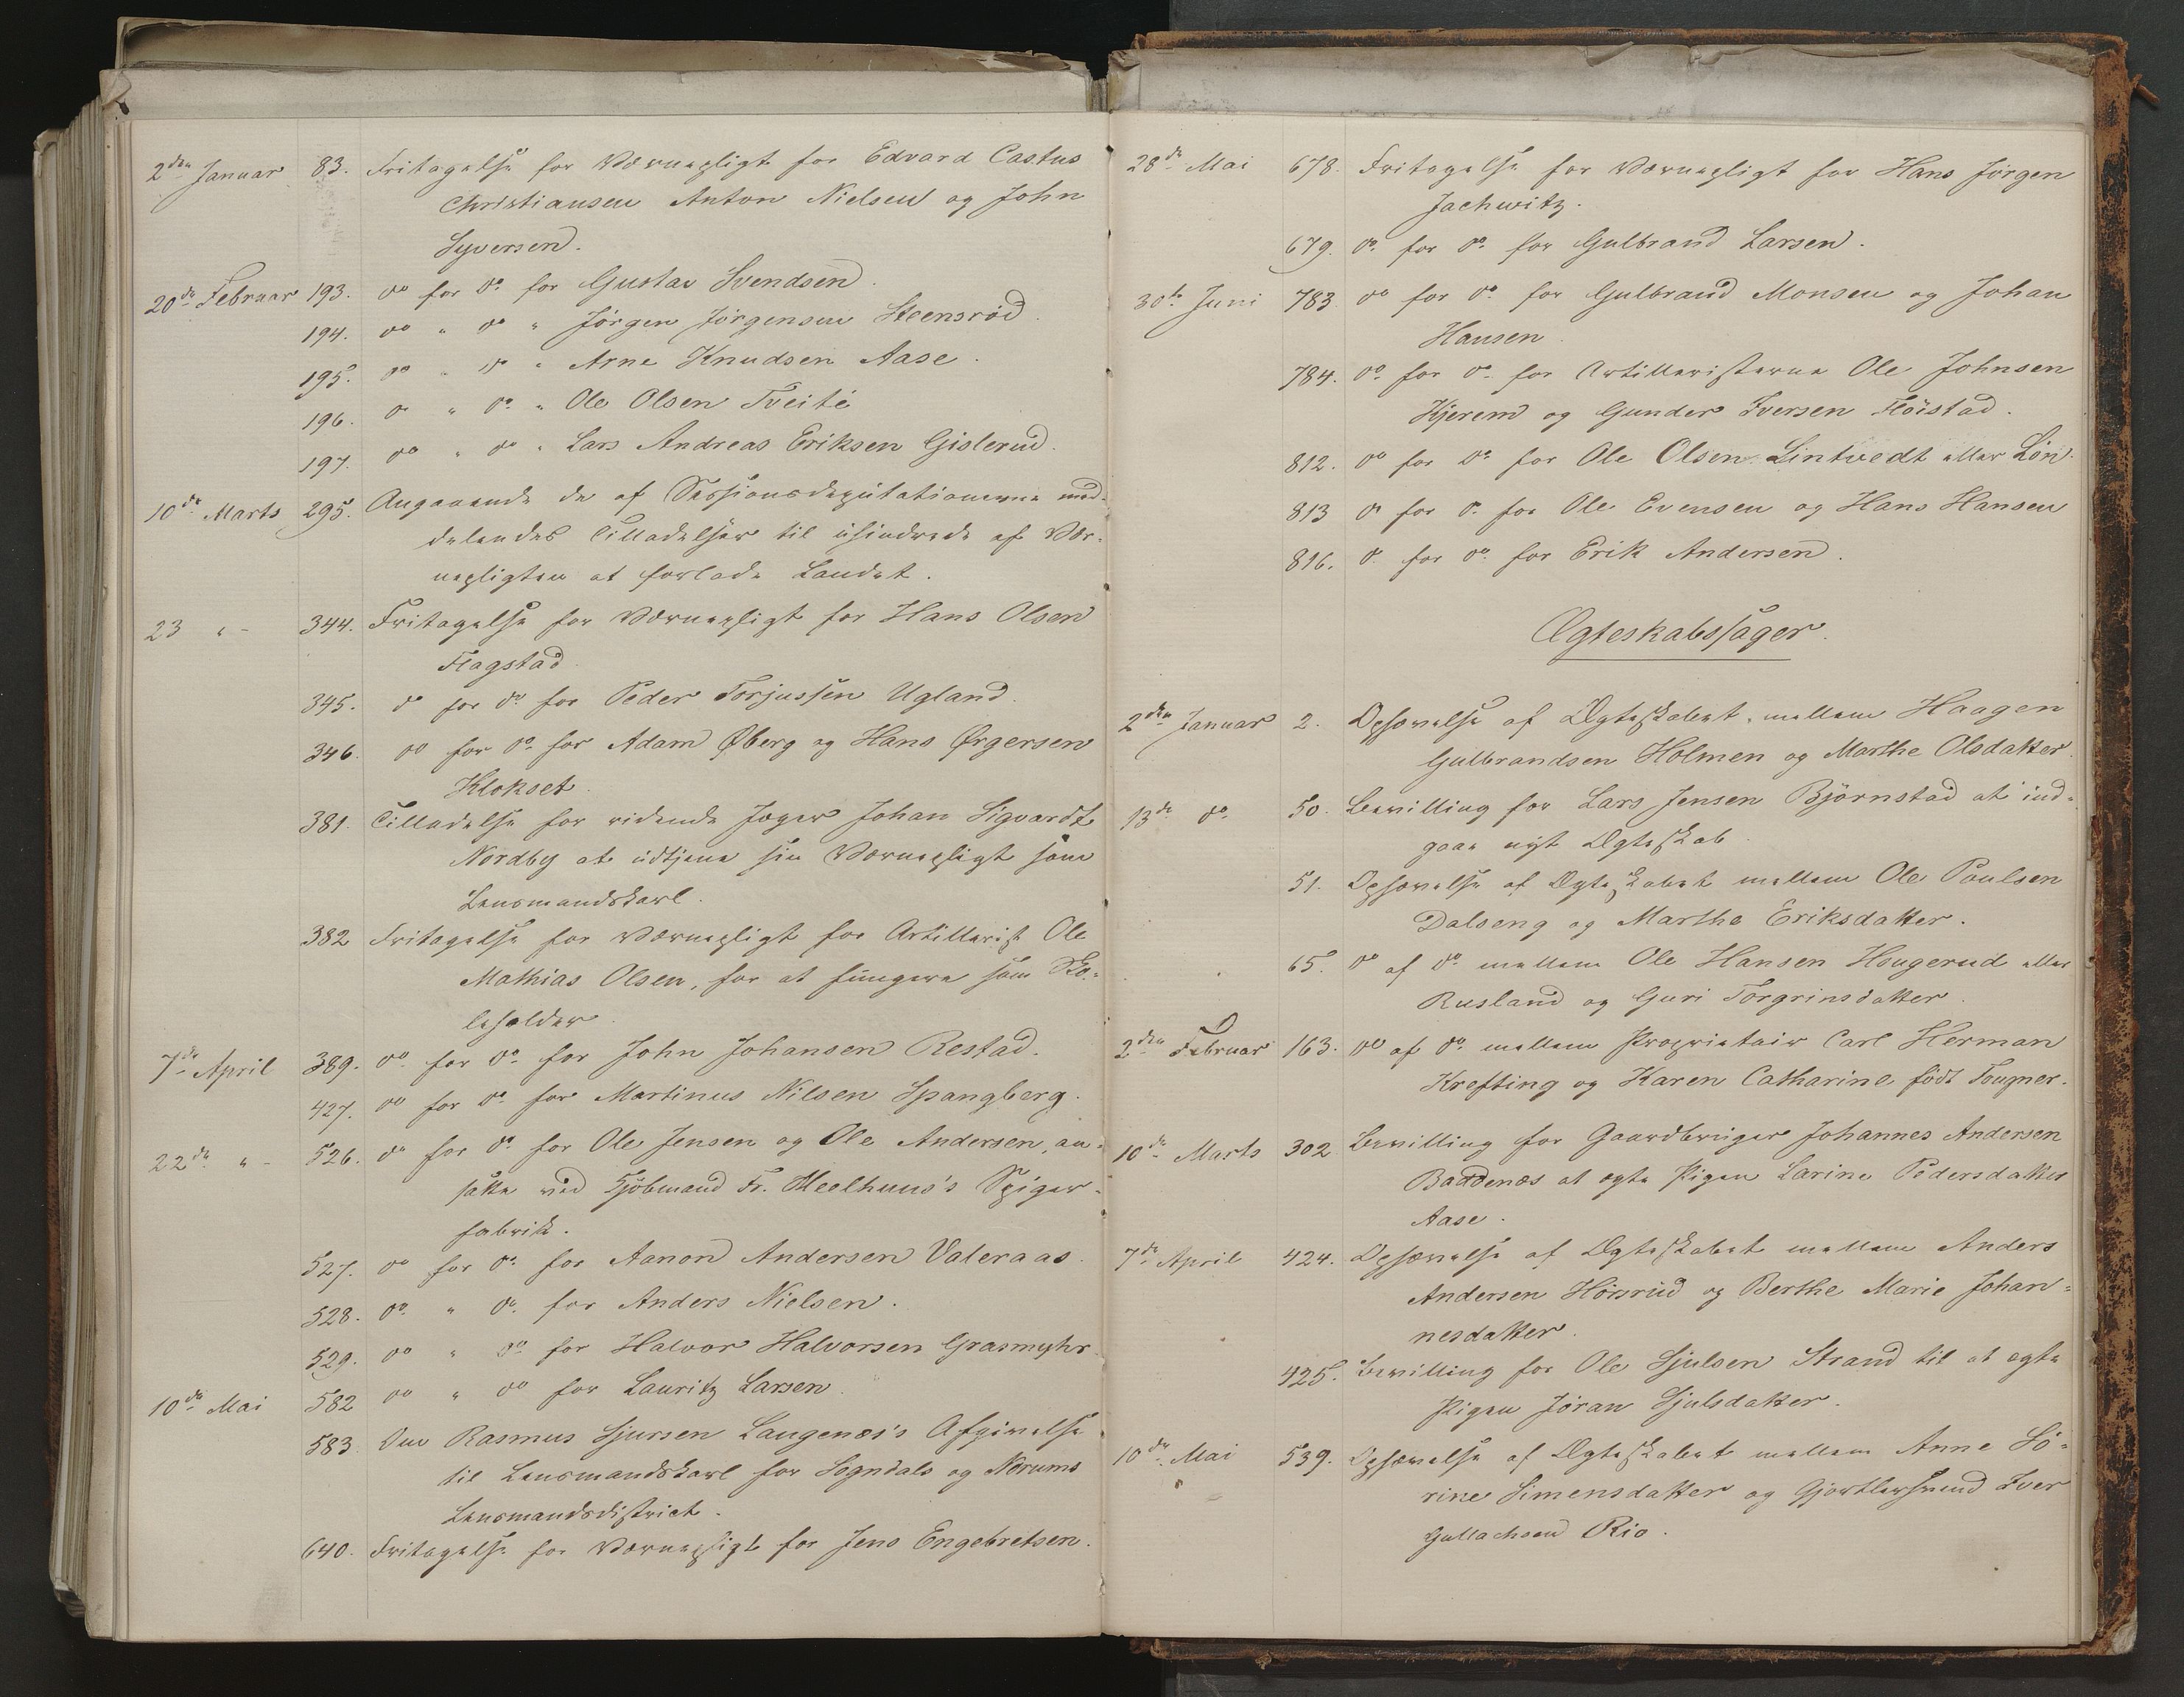 2den Januar 83. Fritagelse for Værnepligt for Edvard Castus
Christiansen Anton Nielsen og John
Syversen.
20de Februar 193. do for do. for Gustav Svendsen.
194. do " do " Jörgen Jörgensen Steensröd.
195. do " do " Arne Knudsen Aase.
196. do " do. " Ole Olsen Tveite
197. do " do " Lars Andreas Eriksen Gislerud.
10de Marts 295. Angaaende de af Sessionsdeputationerne med-
delendes Tilladelser til uhindrede af Vær-
nepligten at forlade Landet.
23 " - 344. Fritagelse for Værnepligt for Hans Olsen
Flagstad.
345. do for do for Peder Torjussen Ugland.
346. do for do. for Adam Øberg og Hans Ørgersen
Klokset.
381. Tilladelse for ridende Jæger Johan Sigvardt
Nordby at udtjene sin Værnepligt som
Lensmandskarl.
382 Fritagelse for Værnepligt for Artillerist Ole
Mathias Olsen, for at fungere som Sko-
leholder.
7de April 389. do. for do. for John Johansen Restad.
427. do for do. for Martinus Nilsen Spangberg.
22de " - 526. do for do. for Ole Jensen og Ole Andersen, an-
satte ved Kjöbmand Fr. Meelhuus's Spiger-
fabrik.
527. do for do. for Aanon Andersen Valeraas.
528. do. " do. for Anders Nielsen.
529. do " do for Halvor Halvorsen Grasmyhr.
10de Mai 582 do " do for Lauritz Larsen.
583. Om Rasmus Sjursen Laugenæs's Afgivelse
til Lensmandskarl for Sogndals og Nerums
Lensmandsdistrict.
640. Fritagelse for Værnepligt for Jens Engebretsen.
28de Mai 678. Fritagelse for Værnepligt for Hans Jörgen
Jachwitz.
679. do. for do. for Gulbrand Larsen.
30te Juni 783. do for do. for Gulbrand Monsen og Johan
Hansen.
784. do. for do. for Artilleristerne Ole Johnsen
Hjerem og Gunder Iversen Flöistad.
812. do for do. for Ole Olsen Lintvedt eller Lön.
813 do for do. for Ole Evensen og Hans Hansen
816. do for do. for Erik Andersen.
Ægteskabssager.
2den Januar 2. Ophævelse af Ægteskabet mellem Haagen
Gulbrandsen Holmen og Marthe Olsdatter.
13de do. 50. Bevilling for Lars Jensen Björnstad at ind-
gaae nyt Ægteskab.
51. Ophævelse af Ægteskabet mellem Ole Poulsen
Dalseng og Marthe Eriksdatter.
65. do af do. mellem Ole Hansen Hougerud eller
Rusland og Guri Torgrinsdatter.
2den Februar 163. do af do. mellem Proprietair Carl Herman
Krefting og Karen Catharine födt Tougner.
10de Marts 302 Bevilling for Gaardbruger Johannes Andersen
Baadenæs at ægte Pigen Larine Pedersdatter
Aase.
7de April 424. Ophævelse af Ægteskabet mellem Anders
Andersen Hörsrud og Berthe Marie Johan-
nesdatter.
425. Bevilling for Ole Sjulsen Strand til at ægte
Pigen Jöran Sjulsdatter.
10de Mai 539. Ophævelse af Ægteskabet mellem Anne Sö-
rine Simensdatter og Gjörtlersvend Iver
Gullachsen Rio.